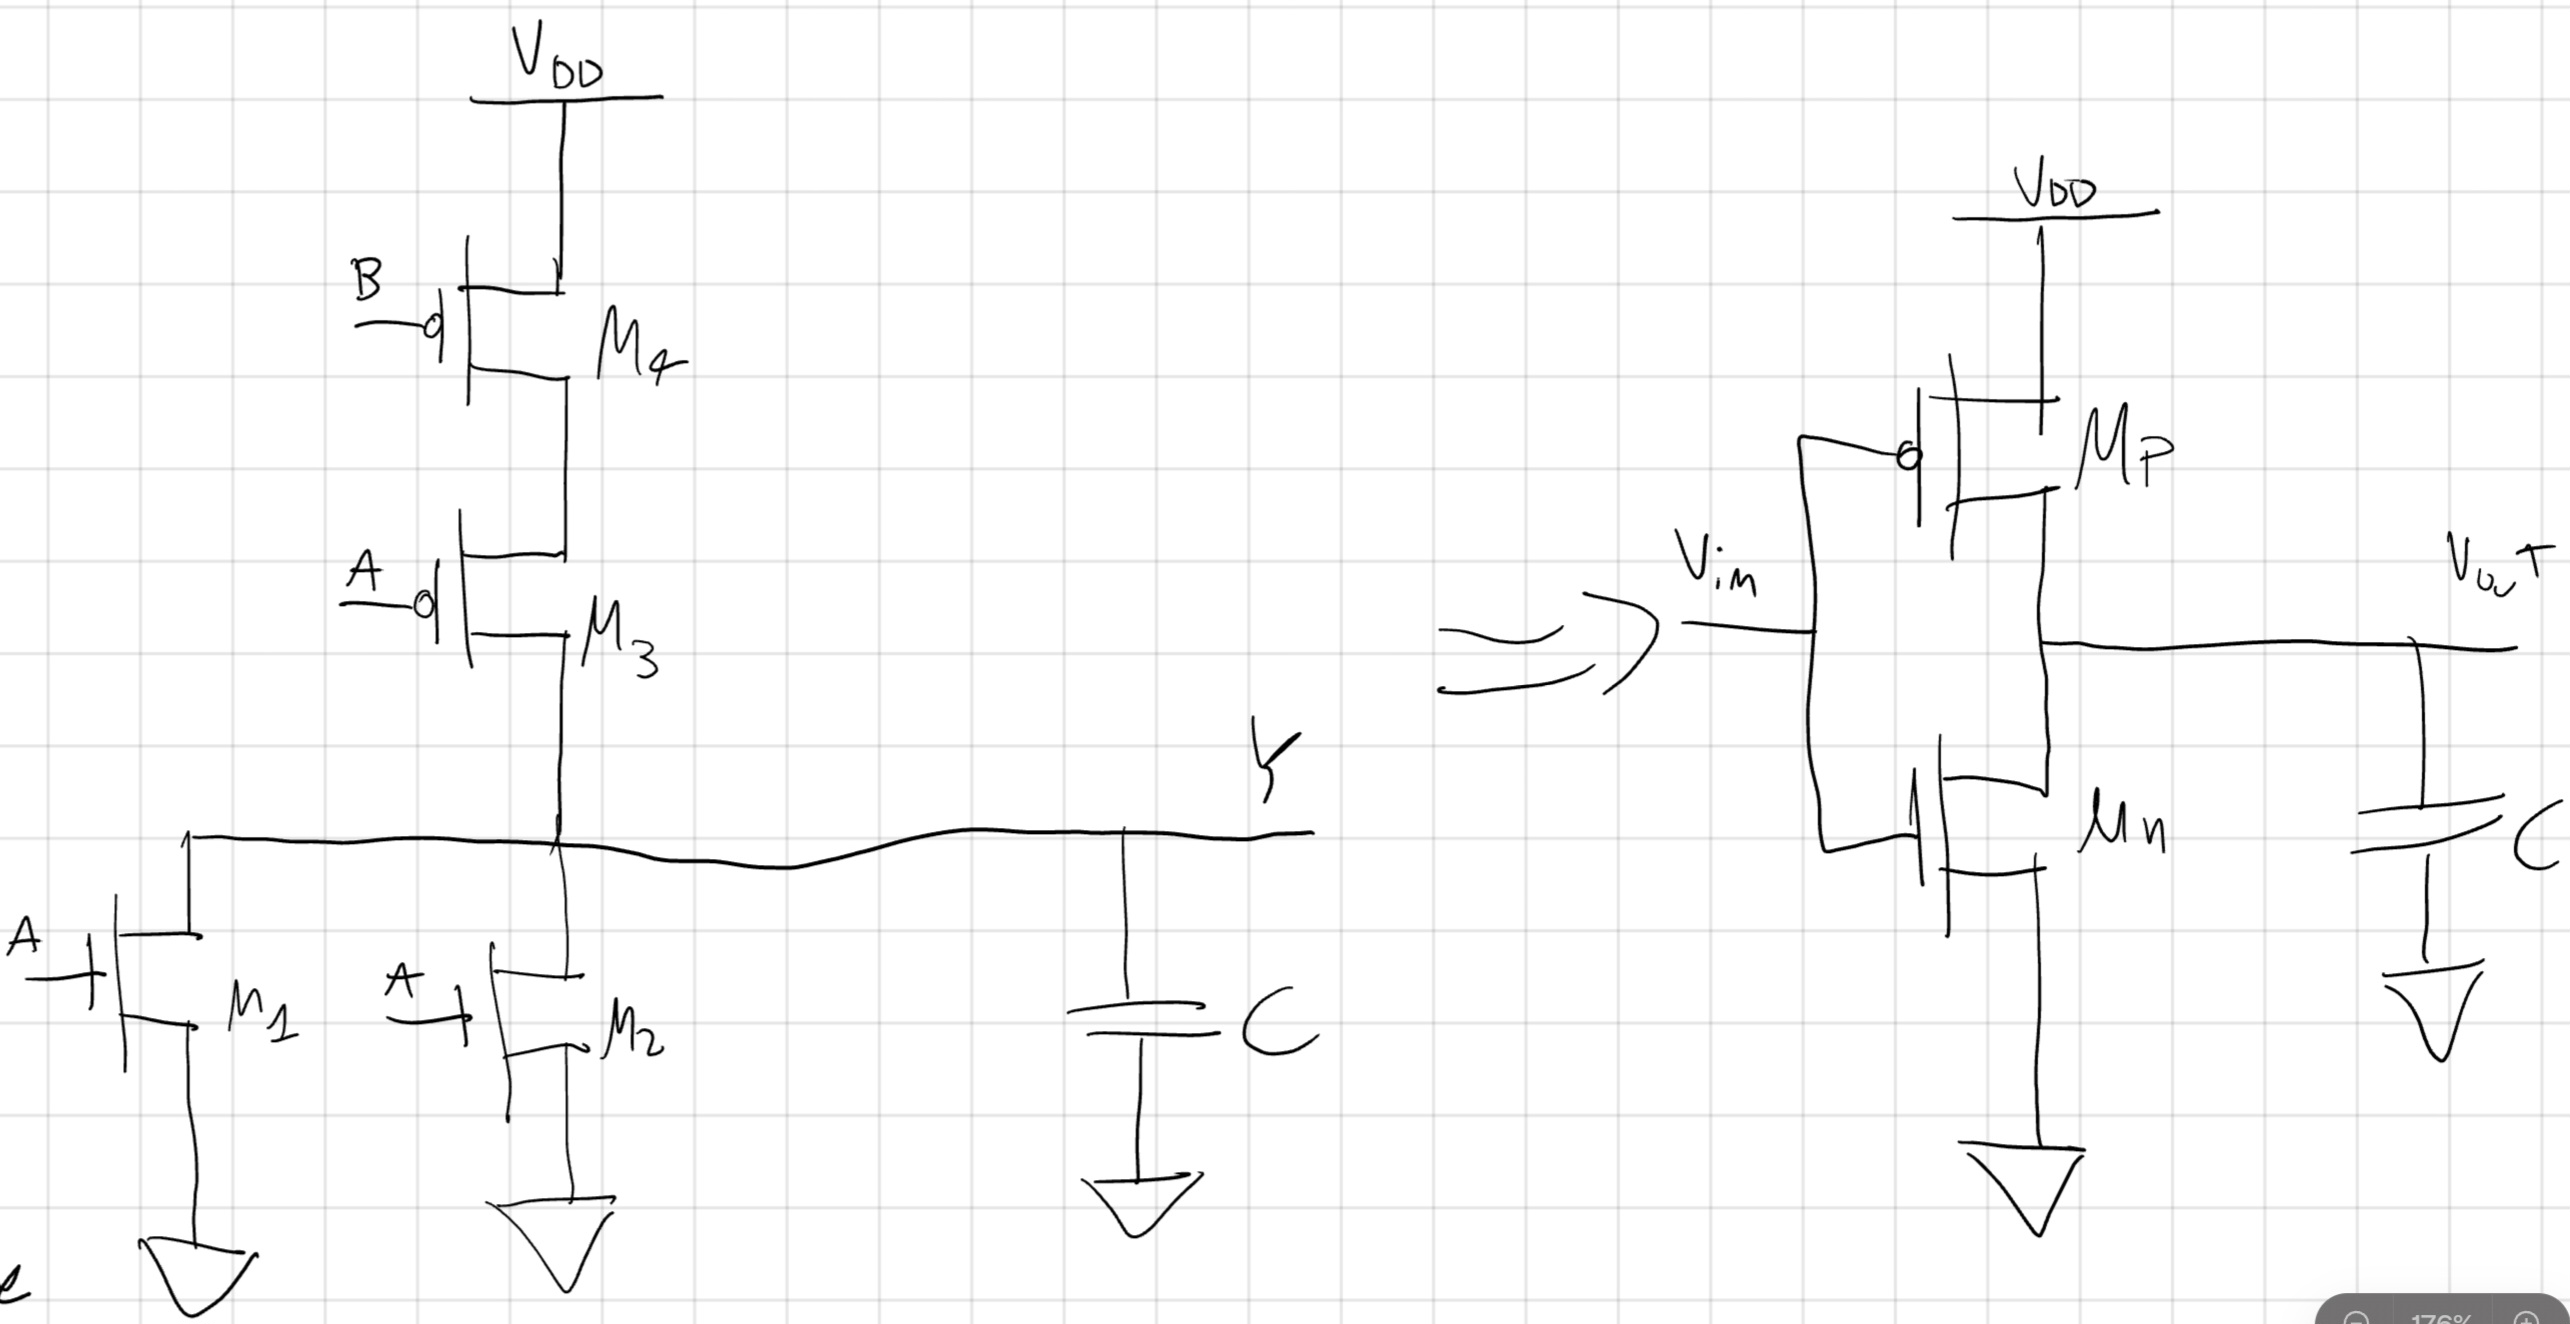 VDD
B
M4
A
M3
Y
A
M1
A
M2
C
VDD
MP
Vin
VouT
Mn
C
176%